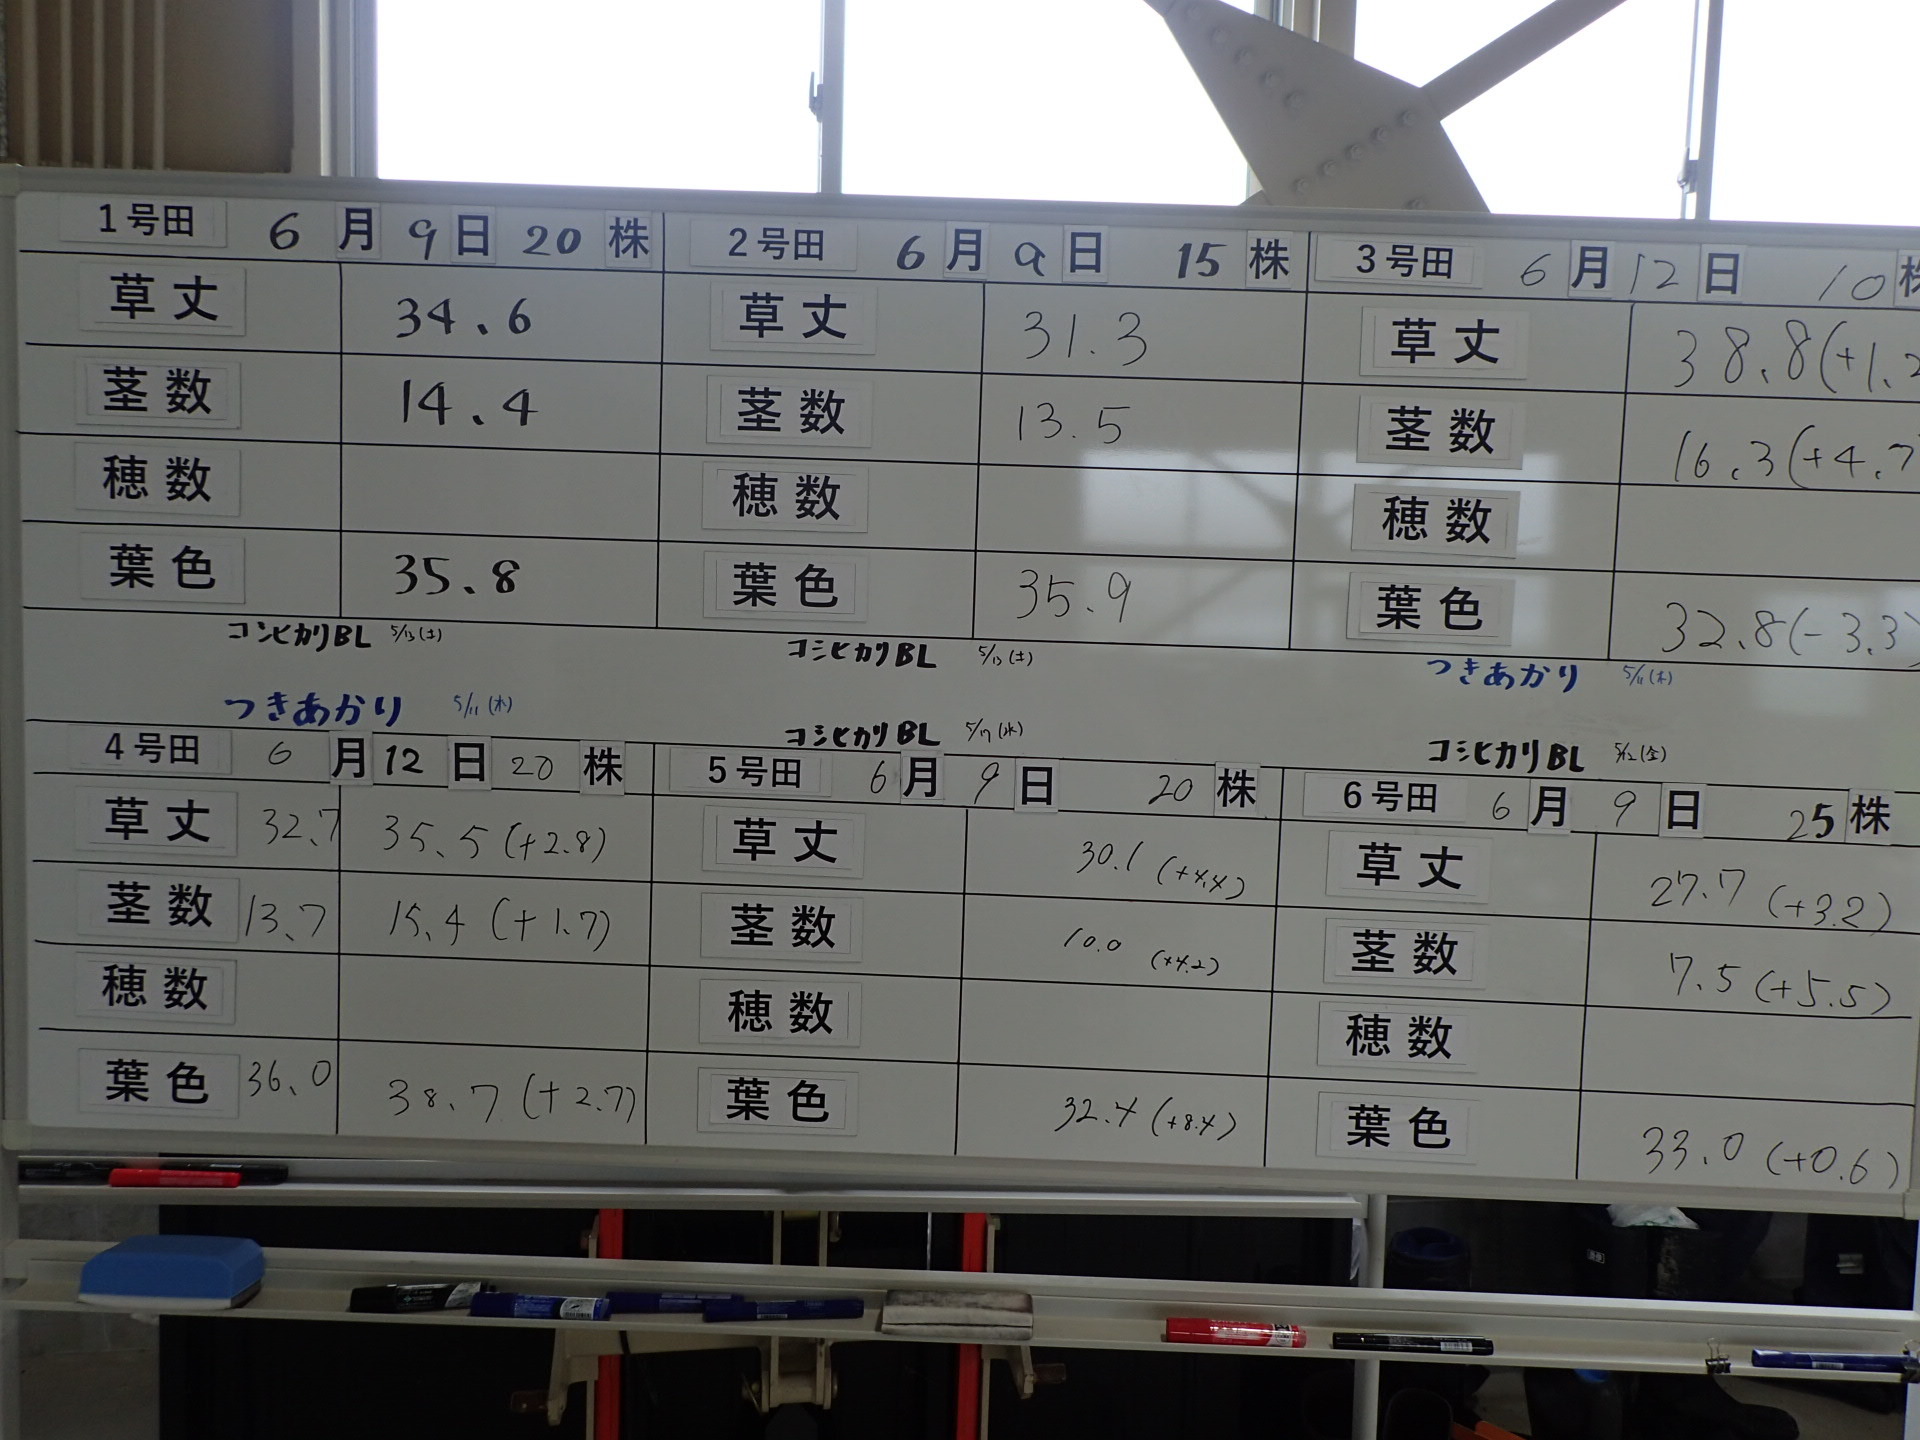 1号田 6月9日 20株
草丈 34.6
茎数 14.4
穂数
葉色 35.8
コシヒカリBL 5/13(土)
2号田 6月9日 15株
草丈 31.3
茎数 13.5
穂数
葉色 35.9
コシヒカリBL 5/13(土)
3号田 6月12日 10株
草丈 38.8(+1.2
茎数 16.3(+4.7
穂数
葉色 32.8(-3.3)
つきあかり 5/11(木)
つきあかり 5/11(木)
4号田 6月12日 20株
草丈 32.7 35.5(+2.8)
茎数 13.7 15.4(+1.7)
穂数
葉色 36.0 38.7(+2.7)
コシヒカリBL 5/17(水)
5号田 6月9日 20株
草丈 30.1(+4.4)
茎数 10.0(+4.2)
穂数
葉色 32.4(+8.4)
コシヒカリBL 5/12(金)
6号田 6月9日 25株
草丈 27.7(+3.2)
茎数 7.5(+5.5)
穂数
葉色 33.0(+0.6)